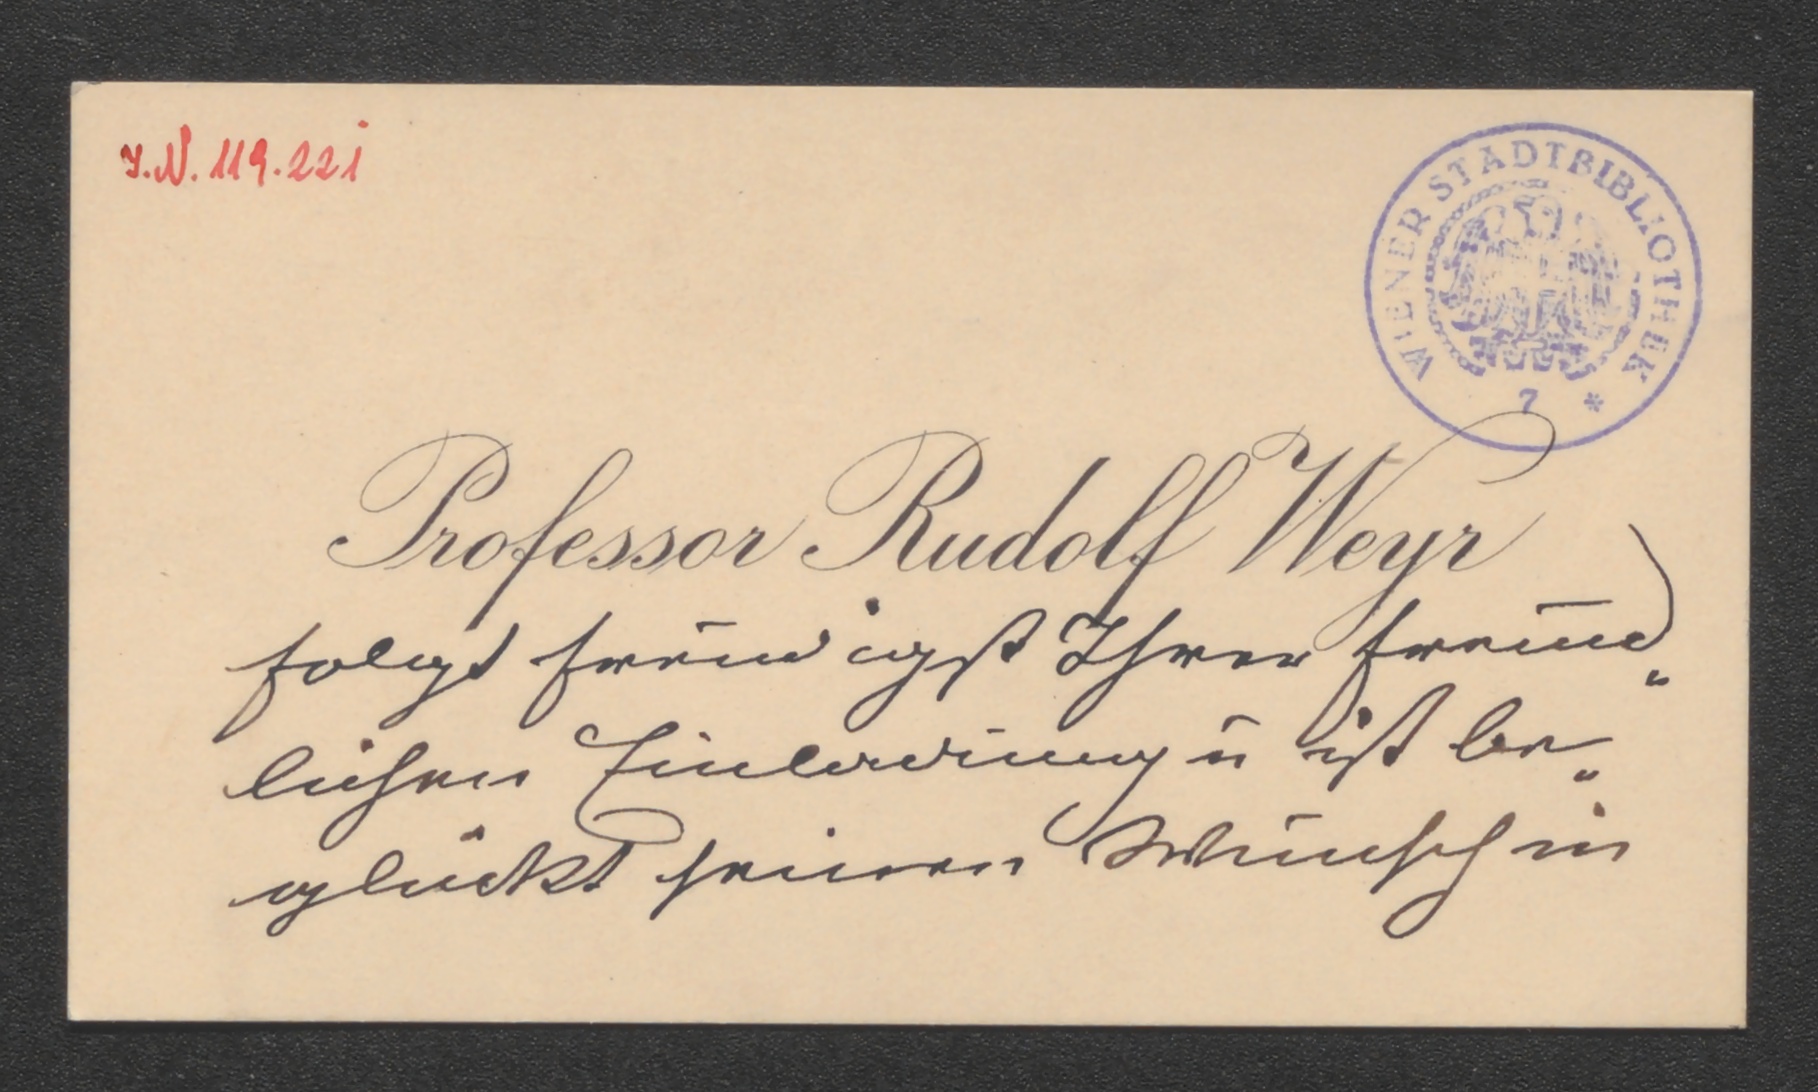 I.N. 119.221
WIENER STADTBIBLIOTHEK
7 *
Professor Rudolf Weyr
folgt freudigst Ihrer freund„
lichen Einladung u ist be„
glückt seinen Wunsch in